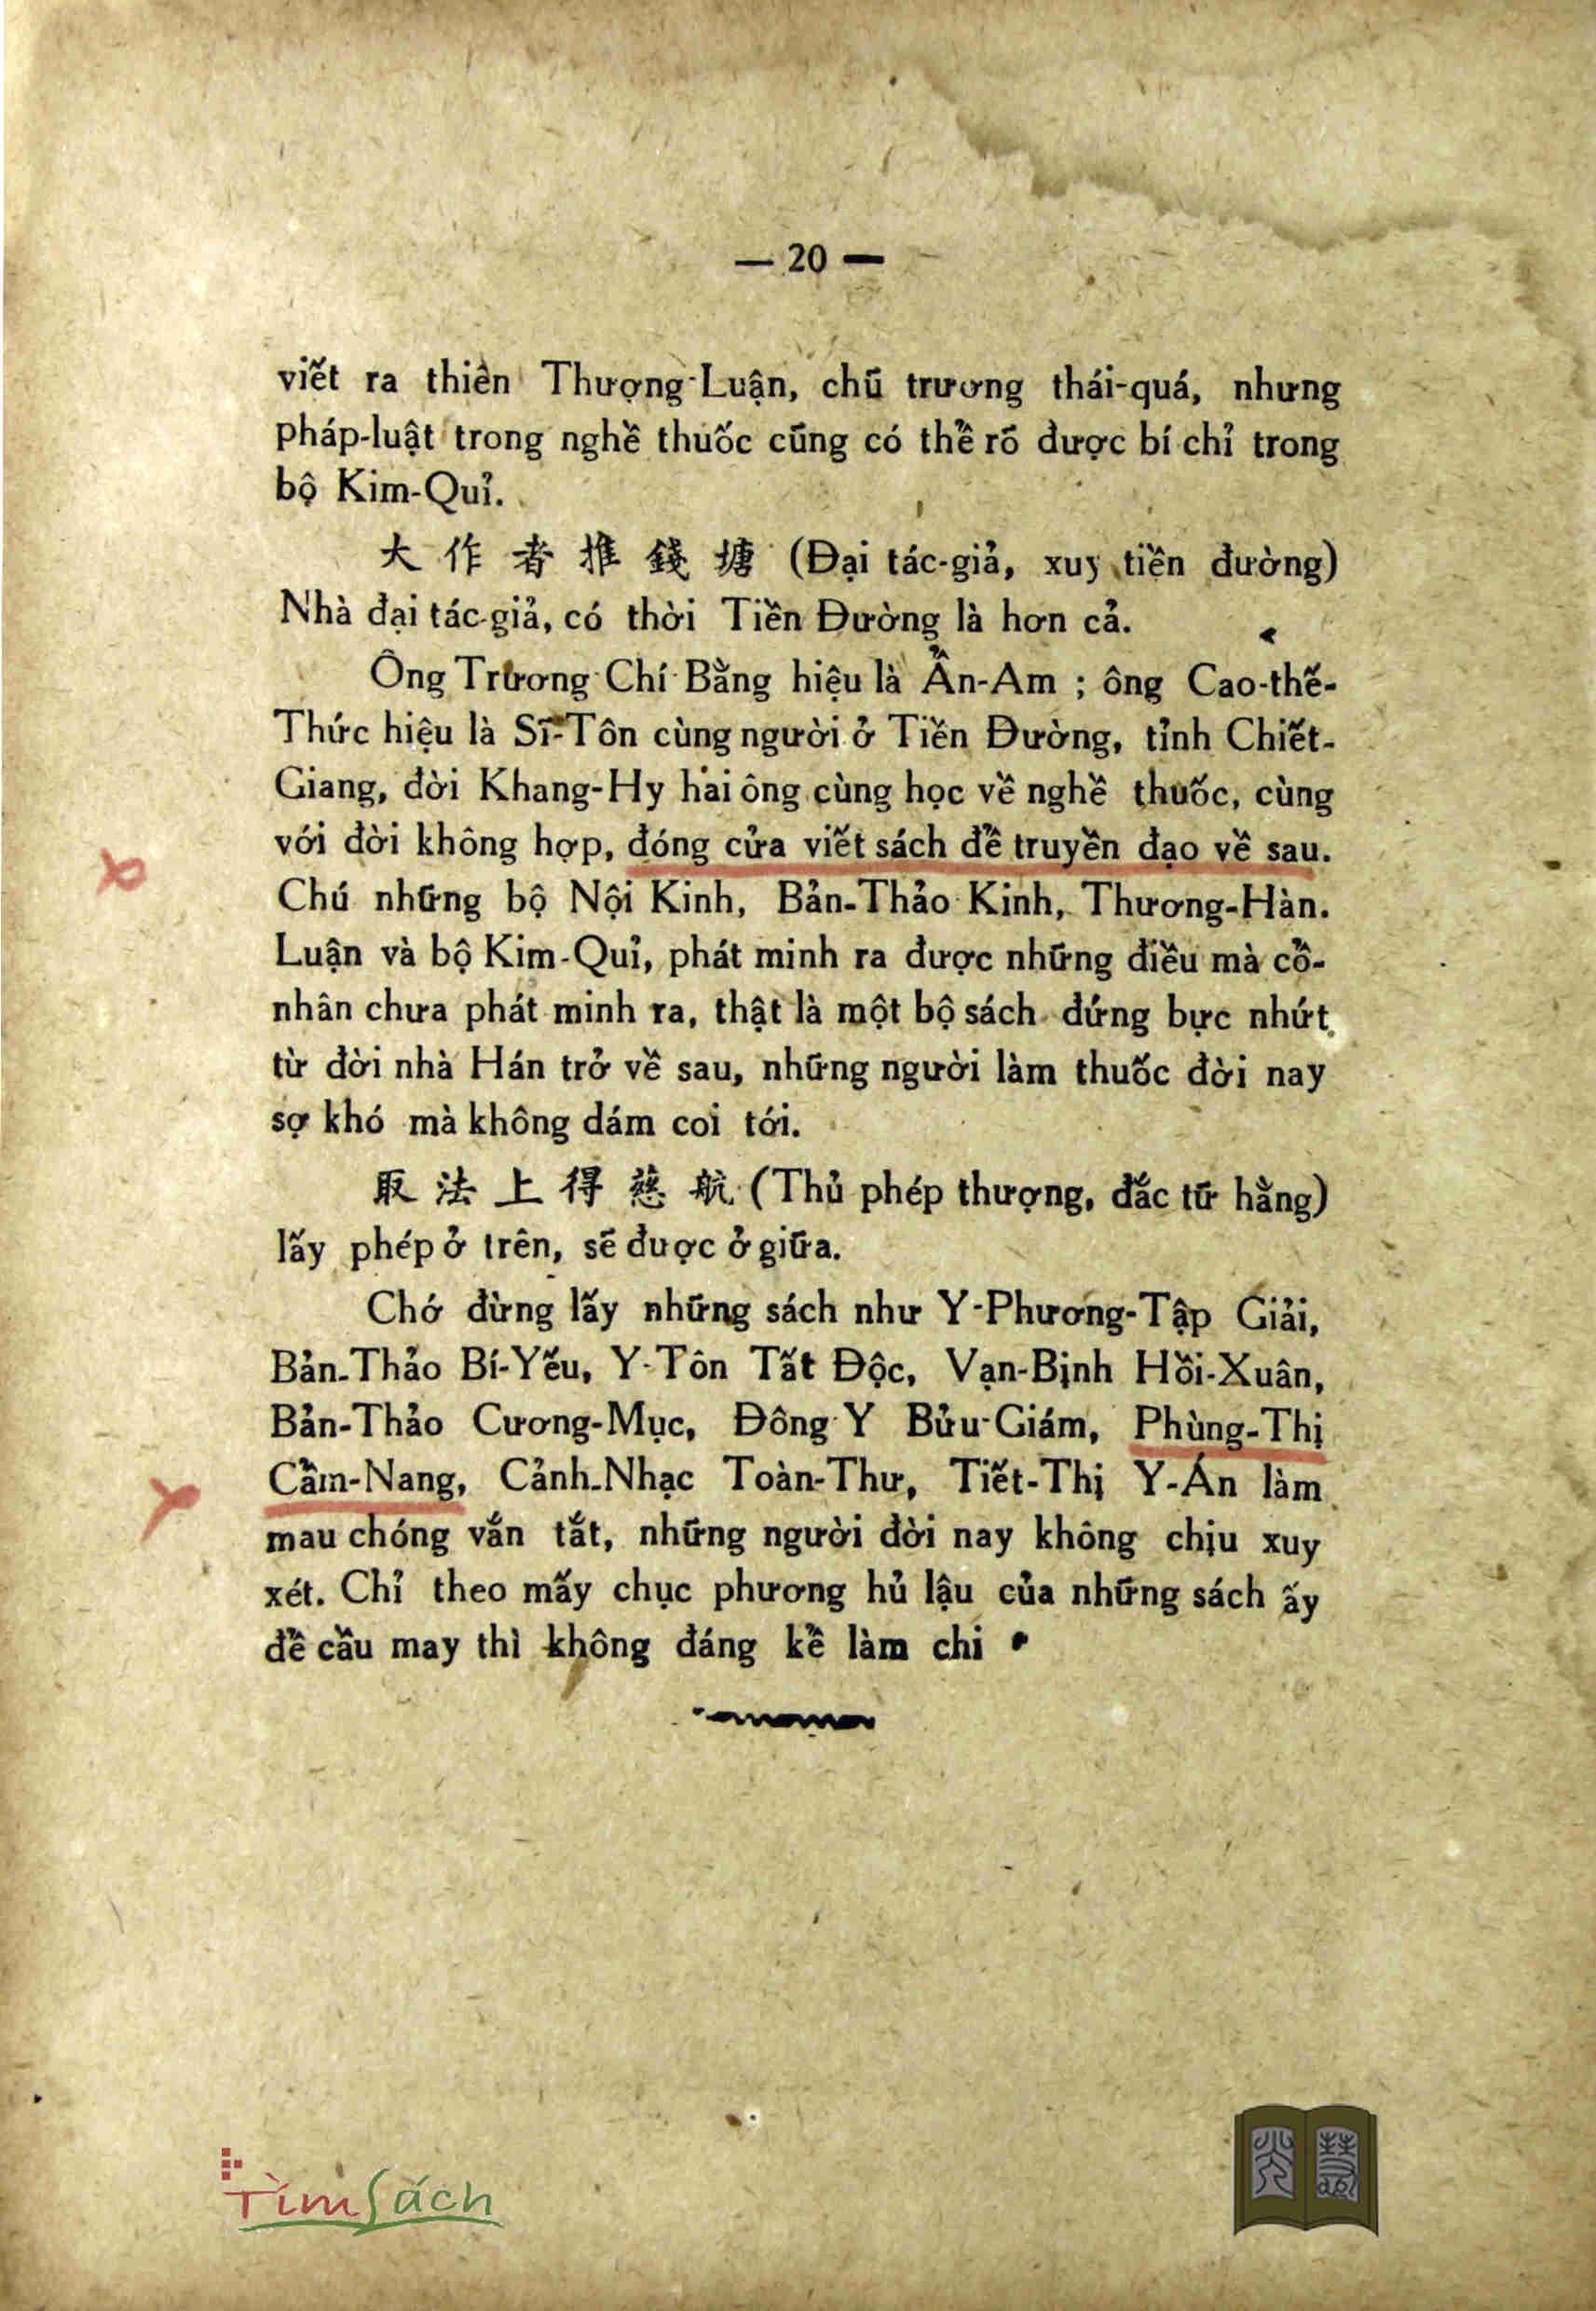 — 20 —
viết ra thiên Thượng-Luận, chủ trương thái-quá, nhưng
pháp-luật trong nghề thuốc cũng có thể rõ được bí chỉ trong
bộ Kim-Quỉ.
大作者推錢塘 (Đại tác-giả, xuy tiền đường)
Nhà đại tác-giả, có thời Tiền Đường là hơn cả.
Ông Trương Chí Bằng hiệu là Ẩn-Am ; ông Cao-thế-
Thức hiệu là Sĩ-Tôn cùng người ở Tiền Đường, tỉnh Chiết-
Giang, đời Khang-Hy hai ông cùng học về nghề thuốc, cùng
với đời không hợp, đóng cửa viết sách để truyền đạo về sau.
Chú những bộ Nội Kinh, Bản-Thảo Kinh, Thương-Hàn.
Luận và bộ Kim-Quỉ, phát minh ra được những điều mà cổ-
nhân chưa phát minh ra, thật là một bộ sách đứng bực nhứt
từ đời nhà Hán trở về sau, những người làm thuốc đời nay
sợ khó mà không dám coi tới.
取法上得慈航 (Thủ phép thượng, đắc từ hằng)
lấy phép ở trên, sẽ được ở giữa.
Chớ đừng lấy những sách như Y-Phương-Tập Giải,
Bản-Thảo Bí-Yếu, Y-Tôn Tất Độc, Vạn-Bịnh Hồi-Xuân,
Bản-Thảo Cương-Mục, Đông Y Bửu-Giám, Phùng-Thị
Cẩm-Nang, Cảnh-Nhạc Toàn-Thư, Tiết-Thị Y-Án làm
mau chóng vắn tắt, những người đời nay không chịu xuy
xét. Chỉ theo mấy chục phương hủ lậu của những sách ấy
để cầu may thì không đáng kể làm chi
TìmSách